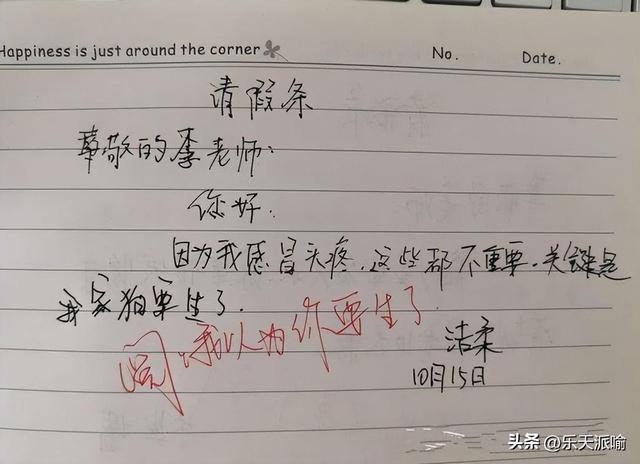 Happiness is just around the corner No. Date.
请假条
尊敬的李老师:
你好.
因为我感冒头疼,这些都不重要.关键是
我家狗要生了.
我以为你要生了
洁柔
10月15日
头条 @乐天派喻